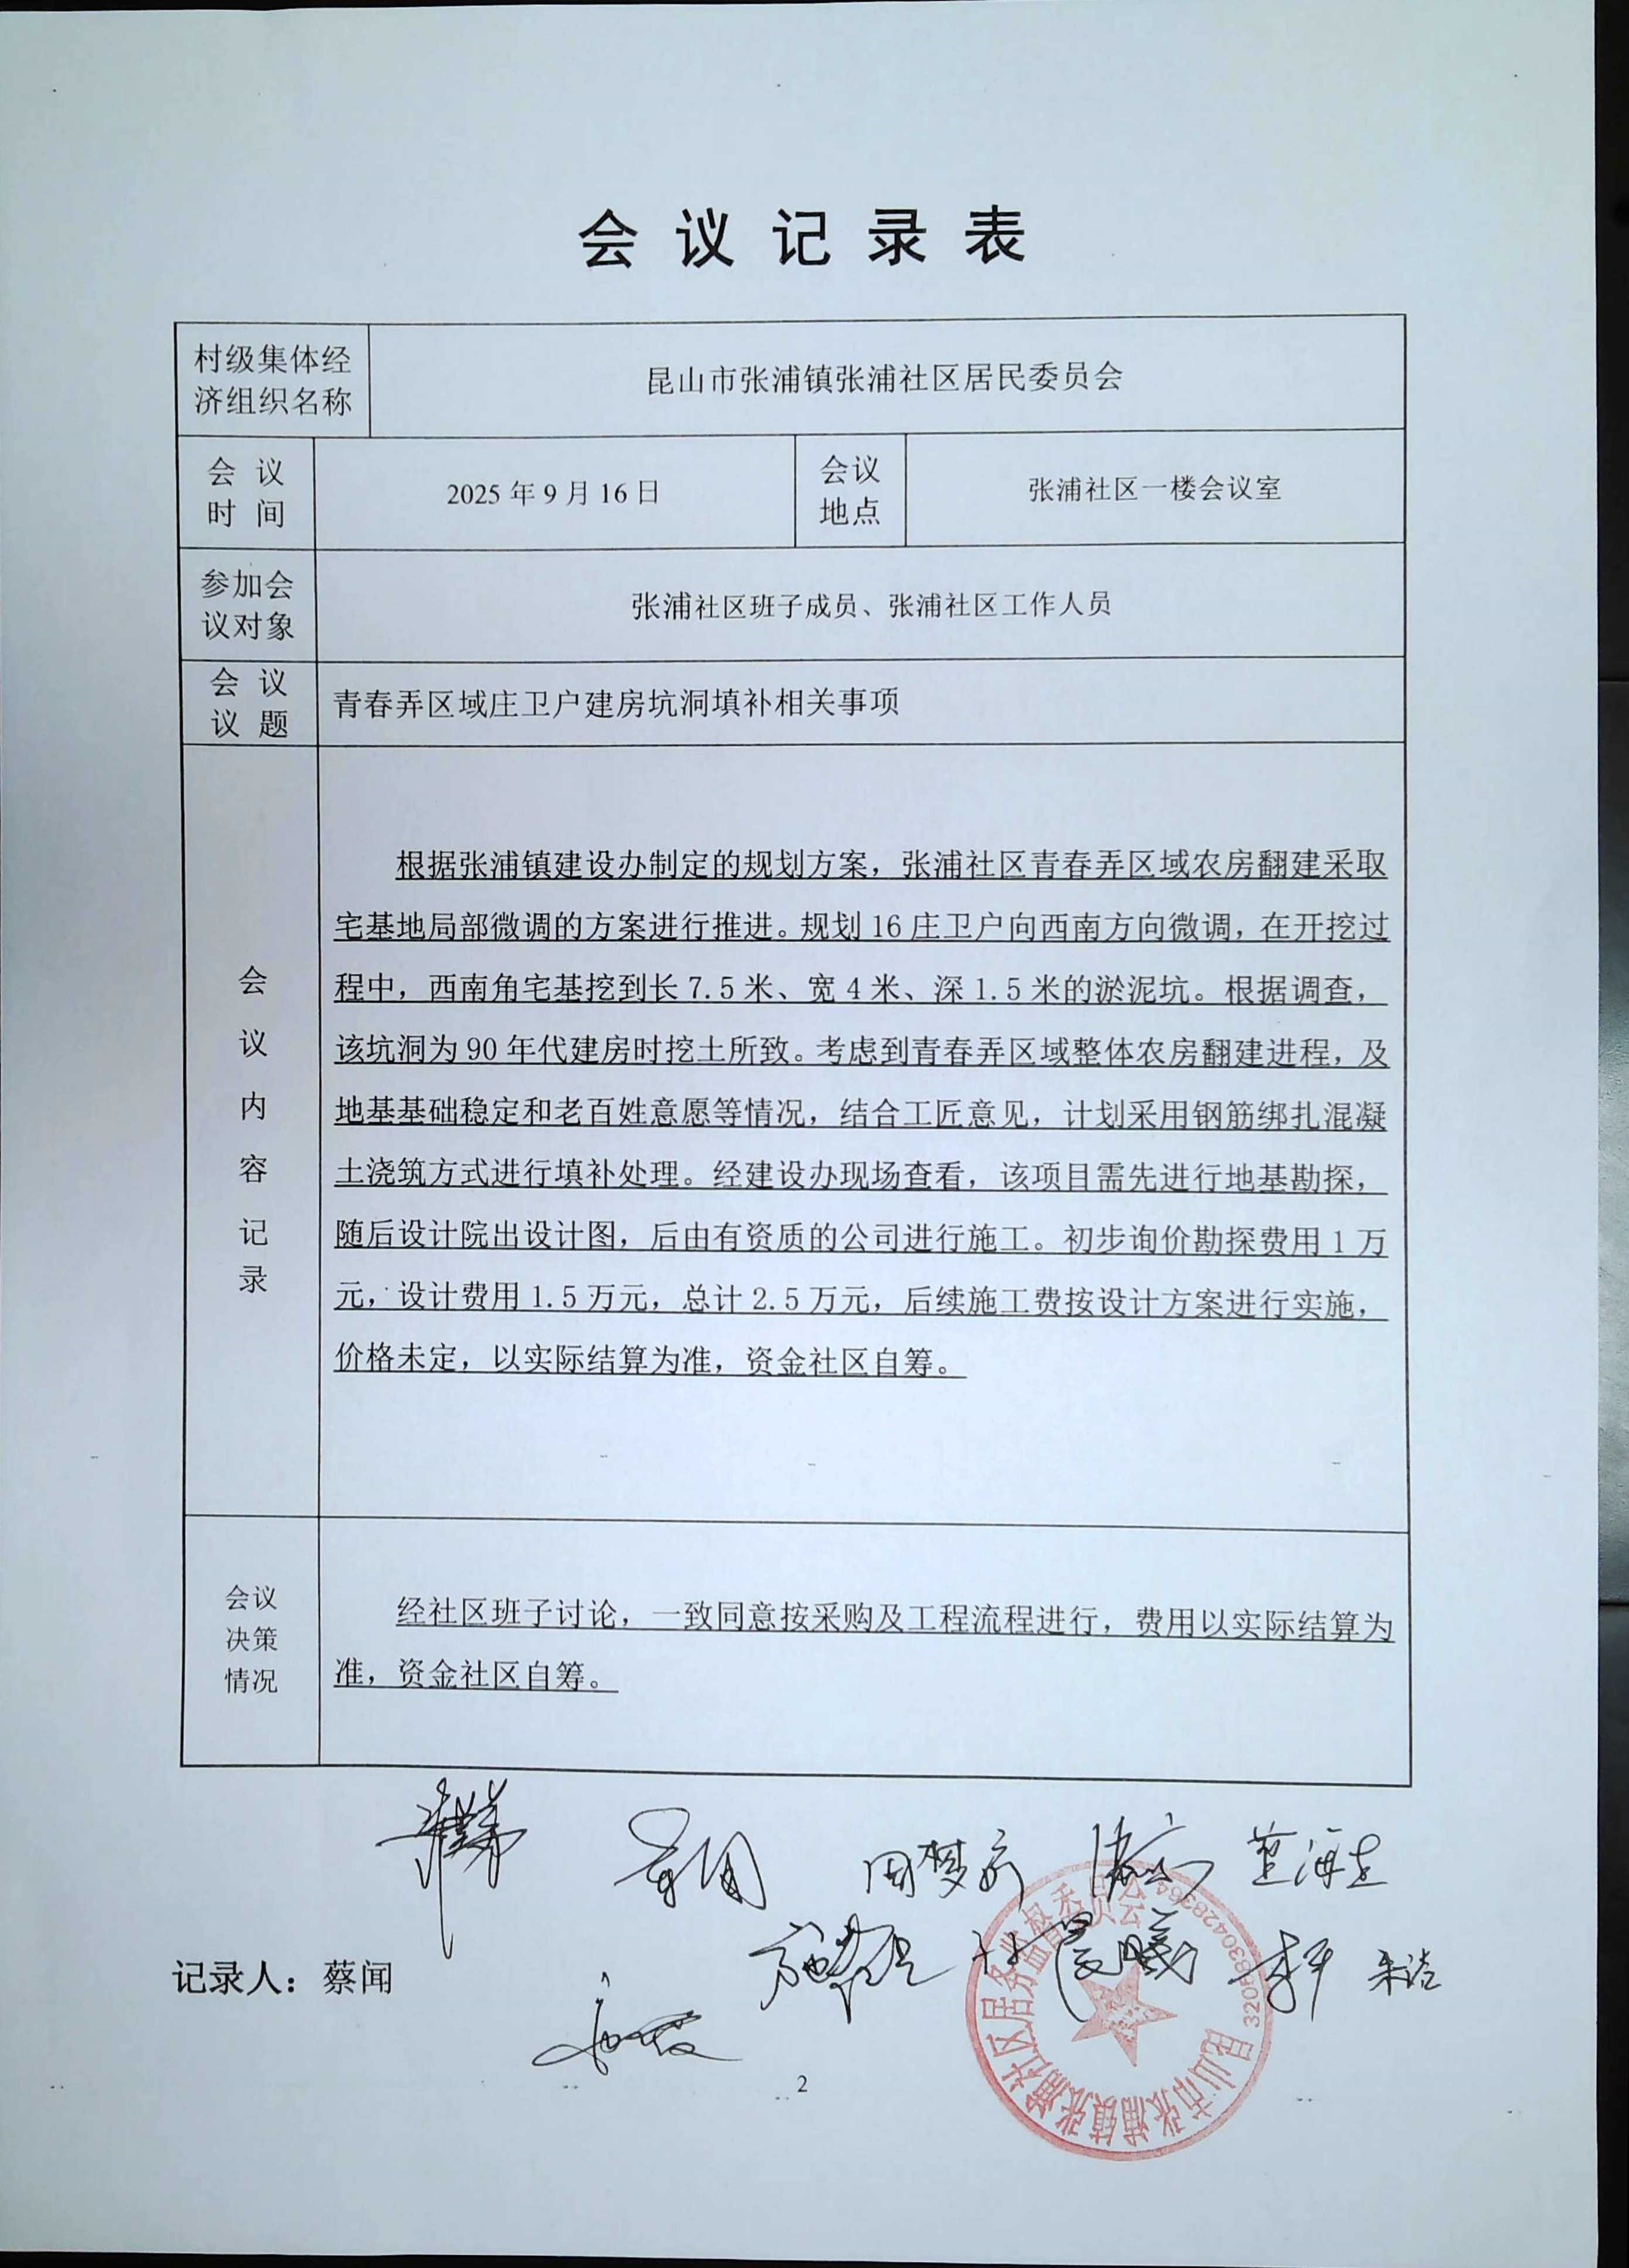 会议记录表
村级集体经
济组织名称
昆山市张浦镇张浦社区居民委员会
会议
时间
2025年9月16日
会议
地点
张浦社区一楼会议室
参加会
议对象
张浦社区班子成员、张浦社区工作人员
会议
议题
青春弄区域庄卫户建房坑洞填补相关事项
会
议
内
容
记
录
根据张浦镇建设办制定的规划方案，张浦社区青春弄区域农房翻建采取
宅基地局部微调的方案进行推进。规划16庄卫户向西南方向微调，在开挖过
程中，西南角宅基挖到长7.5米、宽4米、深1.5米的淤泥坑。根据调查，
该坑洞为90年代建房时挖土所致。考虑到青春弄区域整体农房翻建进程，及
地基基础稳定和老百姓意愿等情况，结合工匠意见，计划采用钢筋绑扎混凝
土浇筑方式进行填补处理。经建设办现场查看，该项目需先进行地基勘探，
随后设计院出设计图，后由有资质的公司进行施工。初步询价勘探费用1万
元，设计费用1.5万元，总计2.5万元，后续施工费按设计方案进行实施，
价格未定，以实际结算为准，资金社区自筹。
会议
决策
情况
经社区班子讨论，一致同意按采购及工程流程进行，费用以实际结算为
准，资金社区自筹。
记录人：蔡闻
昆山市张浦镇张浦社区居务监督委员会
2